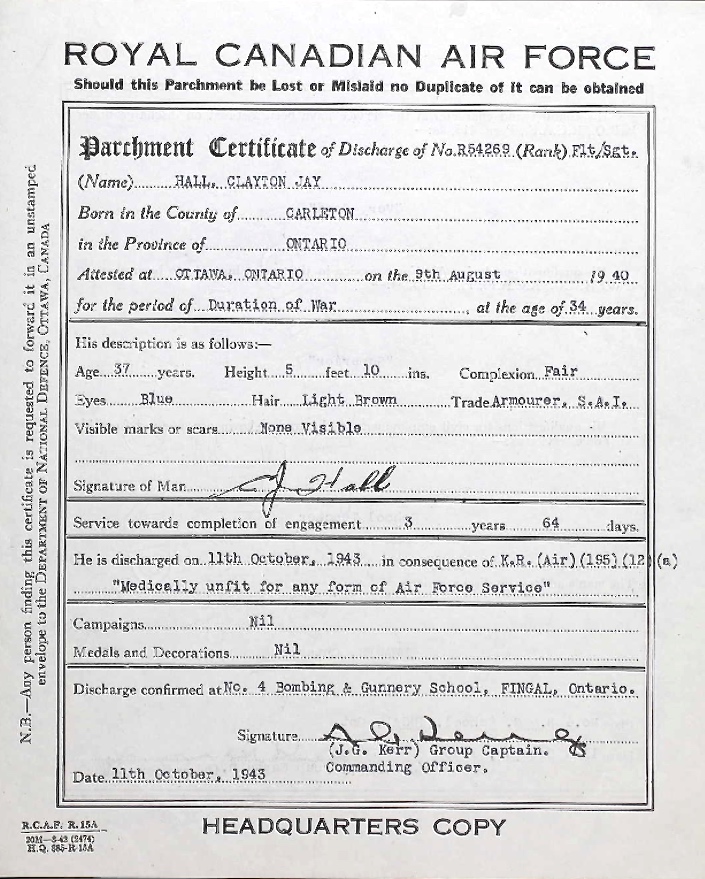 ROYAL CANADIAN AIR FORCE
Should this Parchment be Lost or Mislaid no Duplicate of it can be obtained
Parchment Certificate of Discharge of No. R54269 (Rank) Flt/Sgt.
(Name) HALL, CLAYTON JAY
Born in the County of CARLETON
in the Province of ONTARIO
Attested at OTTAWA, ONTARIO on the 9th August 19 40
for the period of Duration of War, at the age of 34 years.
His description is as follows:—
Age 37 years. Height 5 feet 10 ins. Complexion Fair
Eyes Blue Hair Light Brown Trade Armourer, S.A.I.
Visible marks or scars None Visible
Signature of Man CJ Hall
Service towards completion of engagement 3 years 64 days.
He is discharged on 11th October, 1943 in consequence of K.R. (Air) (195) (12) (a)
"Medically unfit for any form of Air Force Service"
Campaigns Nil
Medals and Decorations Nil
Discharge confirmed at No. 4 Bombing & Gunnery School, FINGAL, Ontario.
Signature
(J.G. Kerr) Group Captain.
Commanding Officer.
Date 11th October, 1943
R.C.A.F. R.15A
20M—8-43 (3474)
H.Q. 885-R-15A
HEADQUARTERS COPY
N.B.—Any person finding this certificate is requested to forward it in an unstamped
envelope to the DEPARTMENT OF NATIONAL DEFENCE, OTTAWA, CANADA